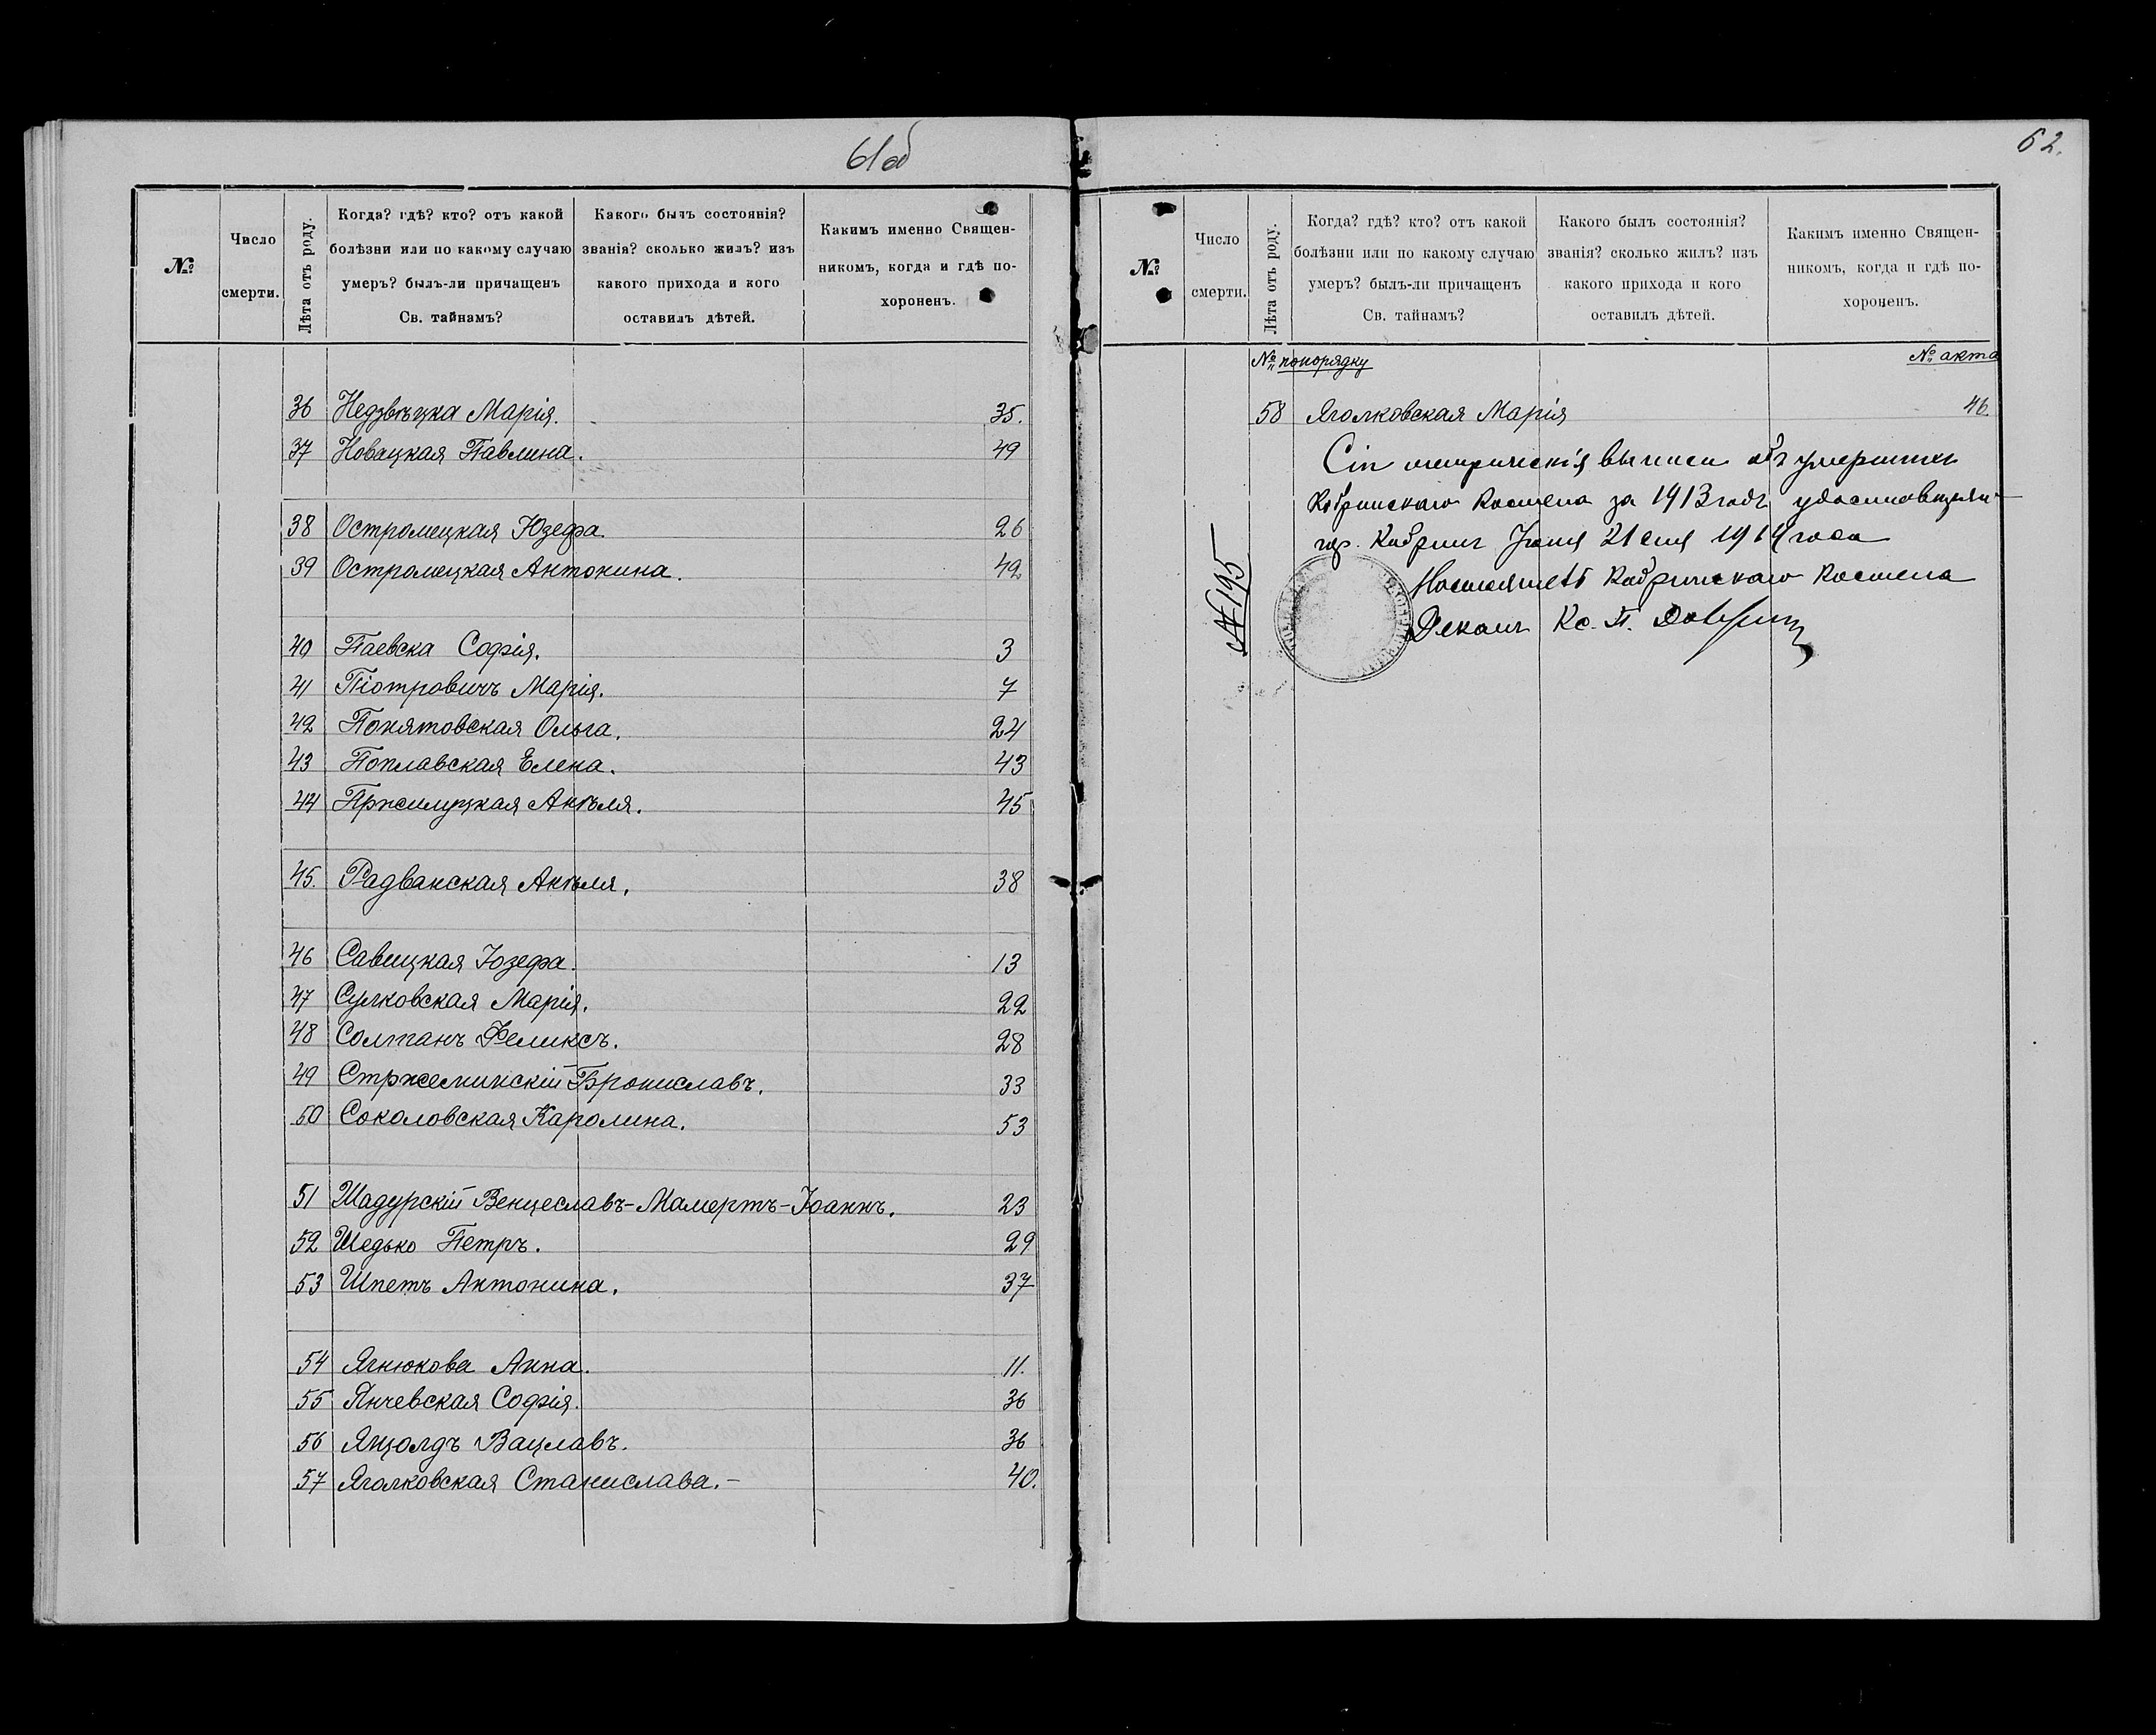 61об
№
Число
смерти.
Лѣта отъ роду.
Когда? гдѣ? кто? отъ какой
болѣзни или по какому случаю
умеръ? былъ-ли причащенъ
Св. тайнамъ?
Какого былъ состоянія?
званія? сколько жилъ? изъ
какого прихода и кого
оставилъ дѣтей.
Какимъ именно Священ-
никомъ, когда и гдѣ по-
хороненъ.
36 Недзвѣцка Марія. 35.
37 Новацкая Павлина. 49
38 Остромецкая Юзефа. 26
39 Остромецкая Антонина. 42
40 Паевска Софія. 3
41 Піотровичъ Марія. 7
42 Понятовская Ольга. 24
43 Поплавская Елена. 43
44 Пржилуцкая Анѣля. 45
45. Радванская Анѣля. 38
46 Савицкая Юзефа. 13
47 Сулковская Марія. 22
48 Солтанъ Феликсъ. 28
49 Стржеминскій Брониславъ. 33
50 Соколовская Каролина. 53
51 Шадурскій Венцеславъ-Мамертъ-Іоаннъ. 23
52 Шедько Петръ. 29
53 Шпетъ Антонина. 37
54 Ягнюкова Анна. 11.
55 Янчевская Софія. 36
56 Вацлавъ. 36
57 Яголковская Станислава.- 40.
62.
№
Число
смерти.
Лѣта отъ роду.
Когда? гдѣ? кто? отъ какой
болѣзни или по какому случаю
умеръ? былъ-ли причащенъ
Св. тайнамъ?
Какого былъ состоянія?
званія? сколько жилъ? изъ
какого прихода и кого
оставилъ дѣтей.
Какимъ именно Священ-
никомъ, когда и гдѣ по-
хороненъ.
№ попорядку № акта
58 Яголковская Марія 46.
Сіи метрическія выписи объ умершихъ
Кобринскаго Костела за 1913 годъ
гор. Кобринъ 21 дня 1914 года
№ 195
Настоятель Кобринскаго Костела
Деканъ Кс.